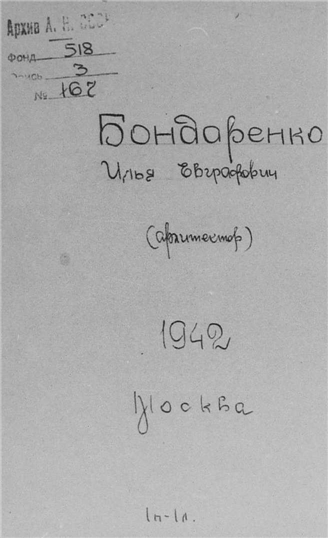 Архив А. Н. СССР
Фонд 518
опись 3
№ 162
Бондаренко
Илья Евграфович
(архитектор)
1942
Москва
1п-1л.